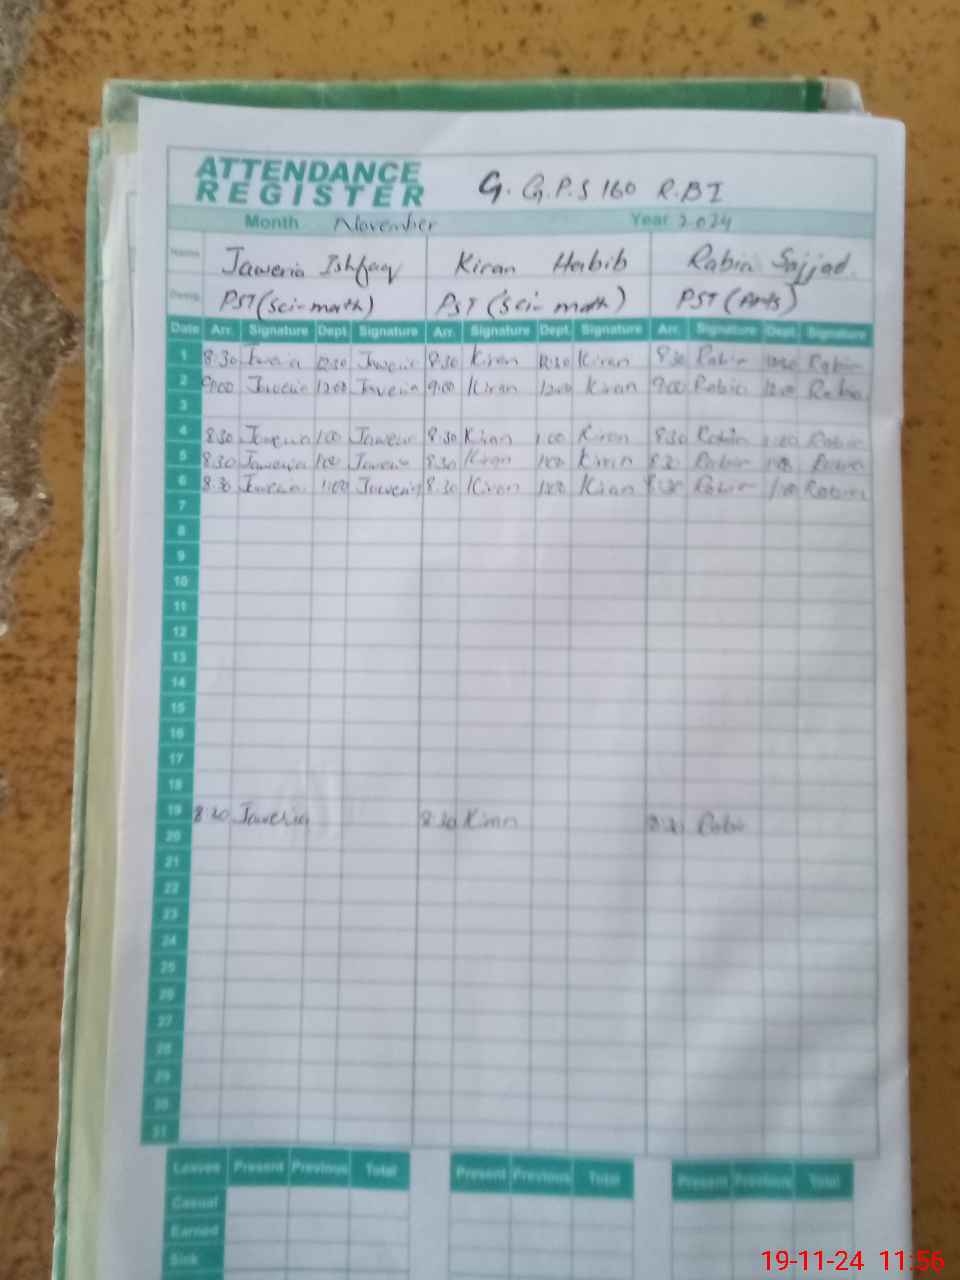 ATTENDANCE
REGISTER G. G.P.S 160 R.BI
Month November Year 2024
Name Jaweria Ishfaq Kiran Habib Rabia Sajjad
Desig. PST (Sci-math) PST (Sci-math) PST (Arts)
Date Arr. Signature Dept. Signature Arr. Signature Dept. Signature Arr. Signature Dept. Signature
1 8:30 12:30 8:30 Kiran 12:30 Kiran 8:30 Rabia Rabia
2 9:00 Jaweria 12:00 Javeria 9:00 Kiran 12:00 Kiran 9:00 Rabia 12:00 Rabia
3
4 8:30 Jaweria 1:00 Jaweria 8:30 Kiran 1:00 Kiran 8:30 Rabia 1:00 Rabia
5 8:30 Jaweria 1:00 Jaweria 8:30 Kiran 1:00 Kiran 8:30 Rabia 1:00
6 8:30 Jaweria 1:00 Jaweria 8:30 Kiran 1:00 Kiran 8:30 Rabia 1:00 Rabia
7
8
9
10
11
12
13
14
15
16
17
18
19 8:30 Jaweria 8:30 Kiran 8:30 Rabia
20
21
22
23
24
25
26
27
28
29
30
31
Leaves Present Previous Total Present Previous Total Present Previous Total
Casual
Earned
Sick
19-11-24 11:56